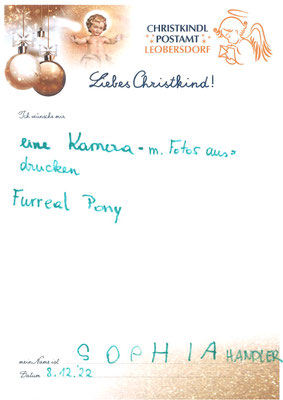 CHRISTKINDL
POSTAMT
LEOBERSDORF
Liebes Christkind!
Ich wünsche mir
eine Kamera - m. Fotos aus=
drucken
Furreal Pony
mein Name ist SOPHIA HANDLER
Datum 8.12.22